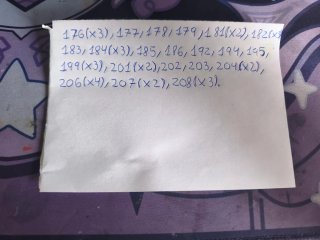 176(x3), 177, 178, 179, 181(x2), 182(x3
183, 184(x3), 185, 186, 192, 194, 195,
199(x3), 201(x2), 202, 203, 204(x2),
206(x4), 207(x2), 208(x3).